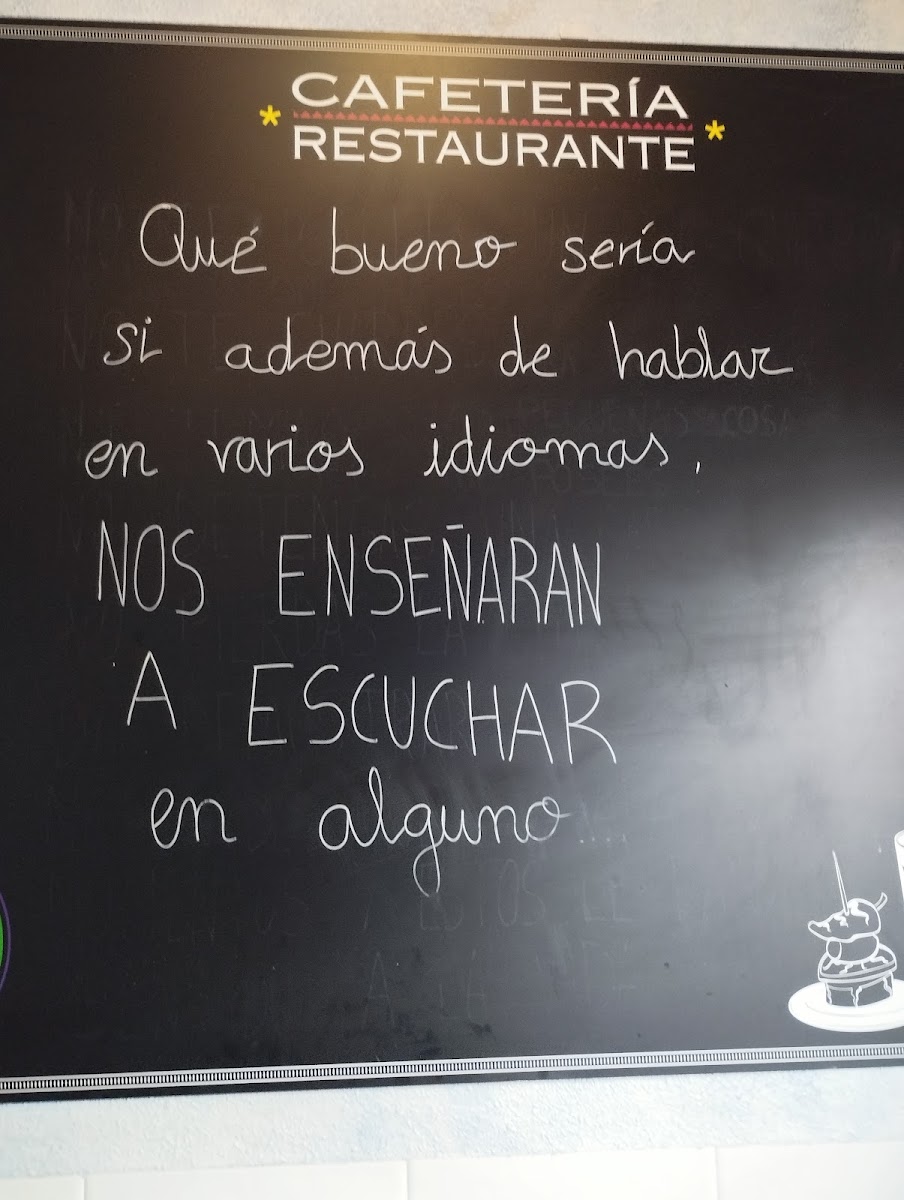 CAFETERÍA
RESTAURANTE
Qué bueno sería
si además de hablar
en varios idiomas,
NOS ENSEÑARAN
A ESCUCHAR
en alguno...